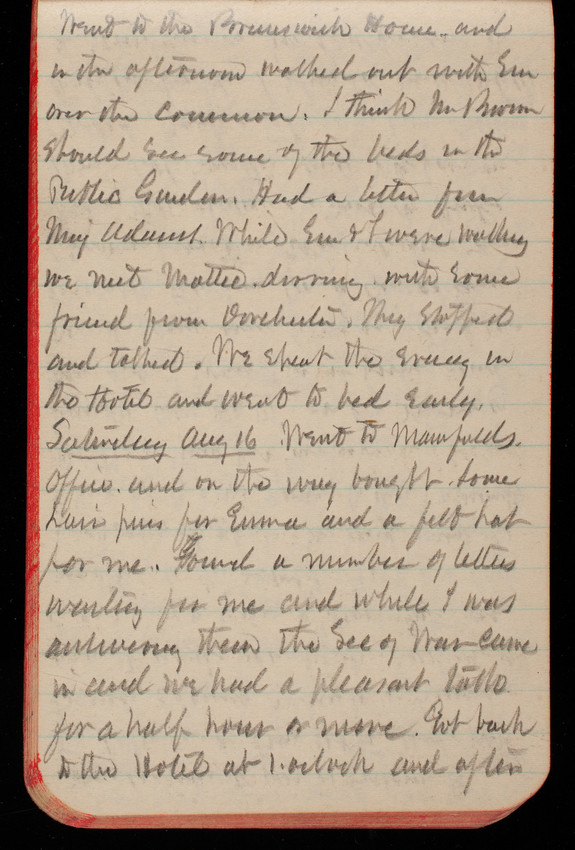 Went to the Brunswick House. and
in the afternoon walked out with Em
over the common. I think Mr Brown
should see some of the beds in the
Public Garden. Had a letter from
Maj Adams. While Em & I were walking
we met Mattie driving with some
friend from Dorchester. They stopped
and talked. We spent the evening in
the Hotel and went to bed early.
Saturday Aug 16 Went to Manfulds.
Office. and on the way bought some
hair pins for Emma and a felt hat
for me. Found a number of letters
waiting for me and while I was
answering them the Sec of War came
in and we had a pleasant talk
for a half hour or more. Got back
to the Hotel at 1. oclock and after